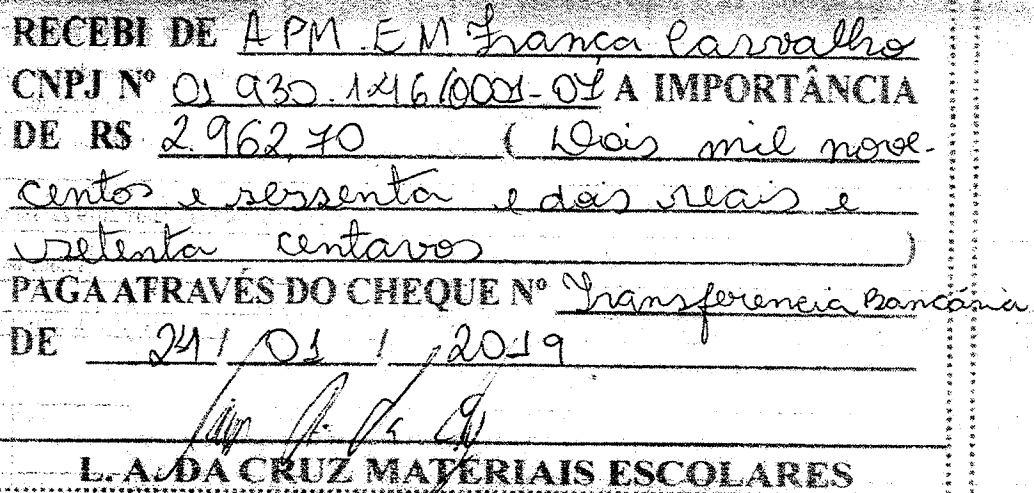 RECEBI DE APM. EM França Carvalho
CNPJ Nº 01 930.146/0001-07 A IMPORTÂNCIA
DE R$ 2.962,70 ( Dois mil nove-
centos e sessenta e dois reais e
setenta centavos )
PAGA ATRAVÉS DO CHEQUE Nº Transferencia Bancária
DE 24 / 01 / 2019
L. A. DA CRUZ MATERIAIS ESCOLARES